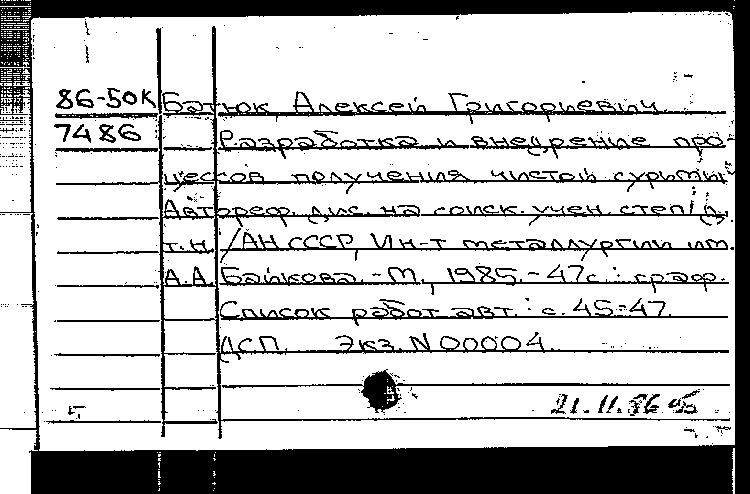 86-50К Батюк, Алексей Григорьевич.
7486 Разработка и внедрение про-
цессов получения чистой сурьмы:
Автореф. дис. на соиск. учен. степ.
т.н. /АН СССР, Ин-т металлургии им.
А.А. Байкова. -М., 1985. -47с.: граф.
Список работ авт.: с. 45-47.
ДСП. Экз. N 00004.
21.11.86